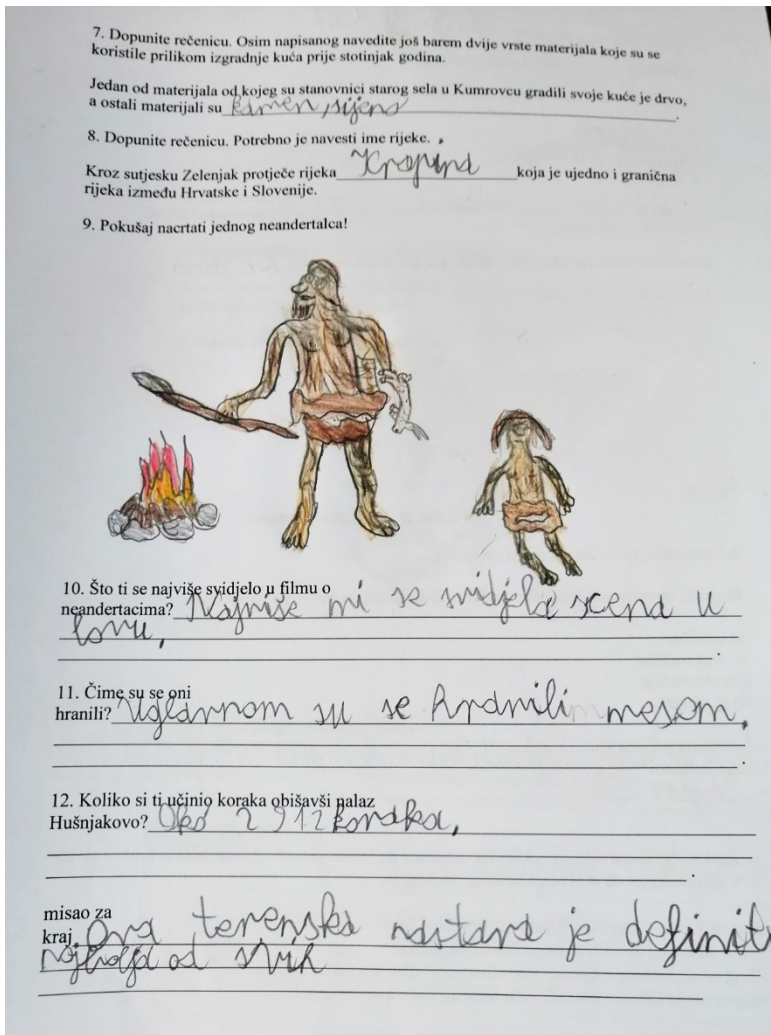 7. Dopunite rečenicu. Osim napisanog navedite još barem dvije vrste materijala koje su se
koristile prilikom izgradnje kuća prije stotinjak godina.
Jedan od materijala od kojeg su stanovnici starog sela u Kumrovcu gradili svoje kuće je drvo,
a ostali materijali su kamen, sijeno.
8. Dopunite rečenicu. Potrebno je navesti ime rijeke.
Kroz sutjesku Zelenjak protječe rijeka Krapina koja je ujedno i granična
rijeka između Hrvatske i Slovenije.
9. Pokušaj nacrtati jednog neandertalca!
10. Što ti se najviše svidjelo u filmu o
neandertacima? Najviše mi se svidjela scena u
lovu,
.
11. Čime su se oni
hranili? Uglavnom su se hranili mesom.
.
12. Koliko si ti učinio koraka obišavši nalaz
Hušnjakovo? Oko 2912 koraka,
.
misao za
kraj. Ova terenska nastava je definit
najbolja od svih